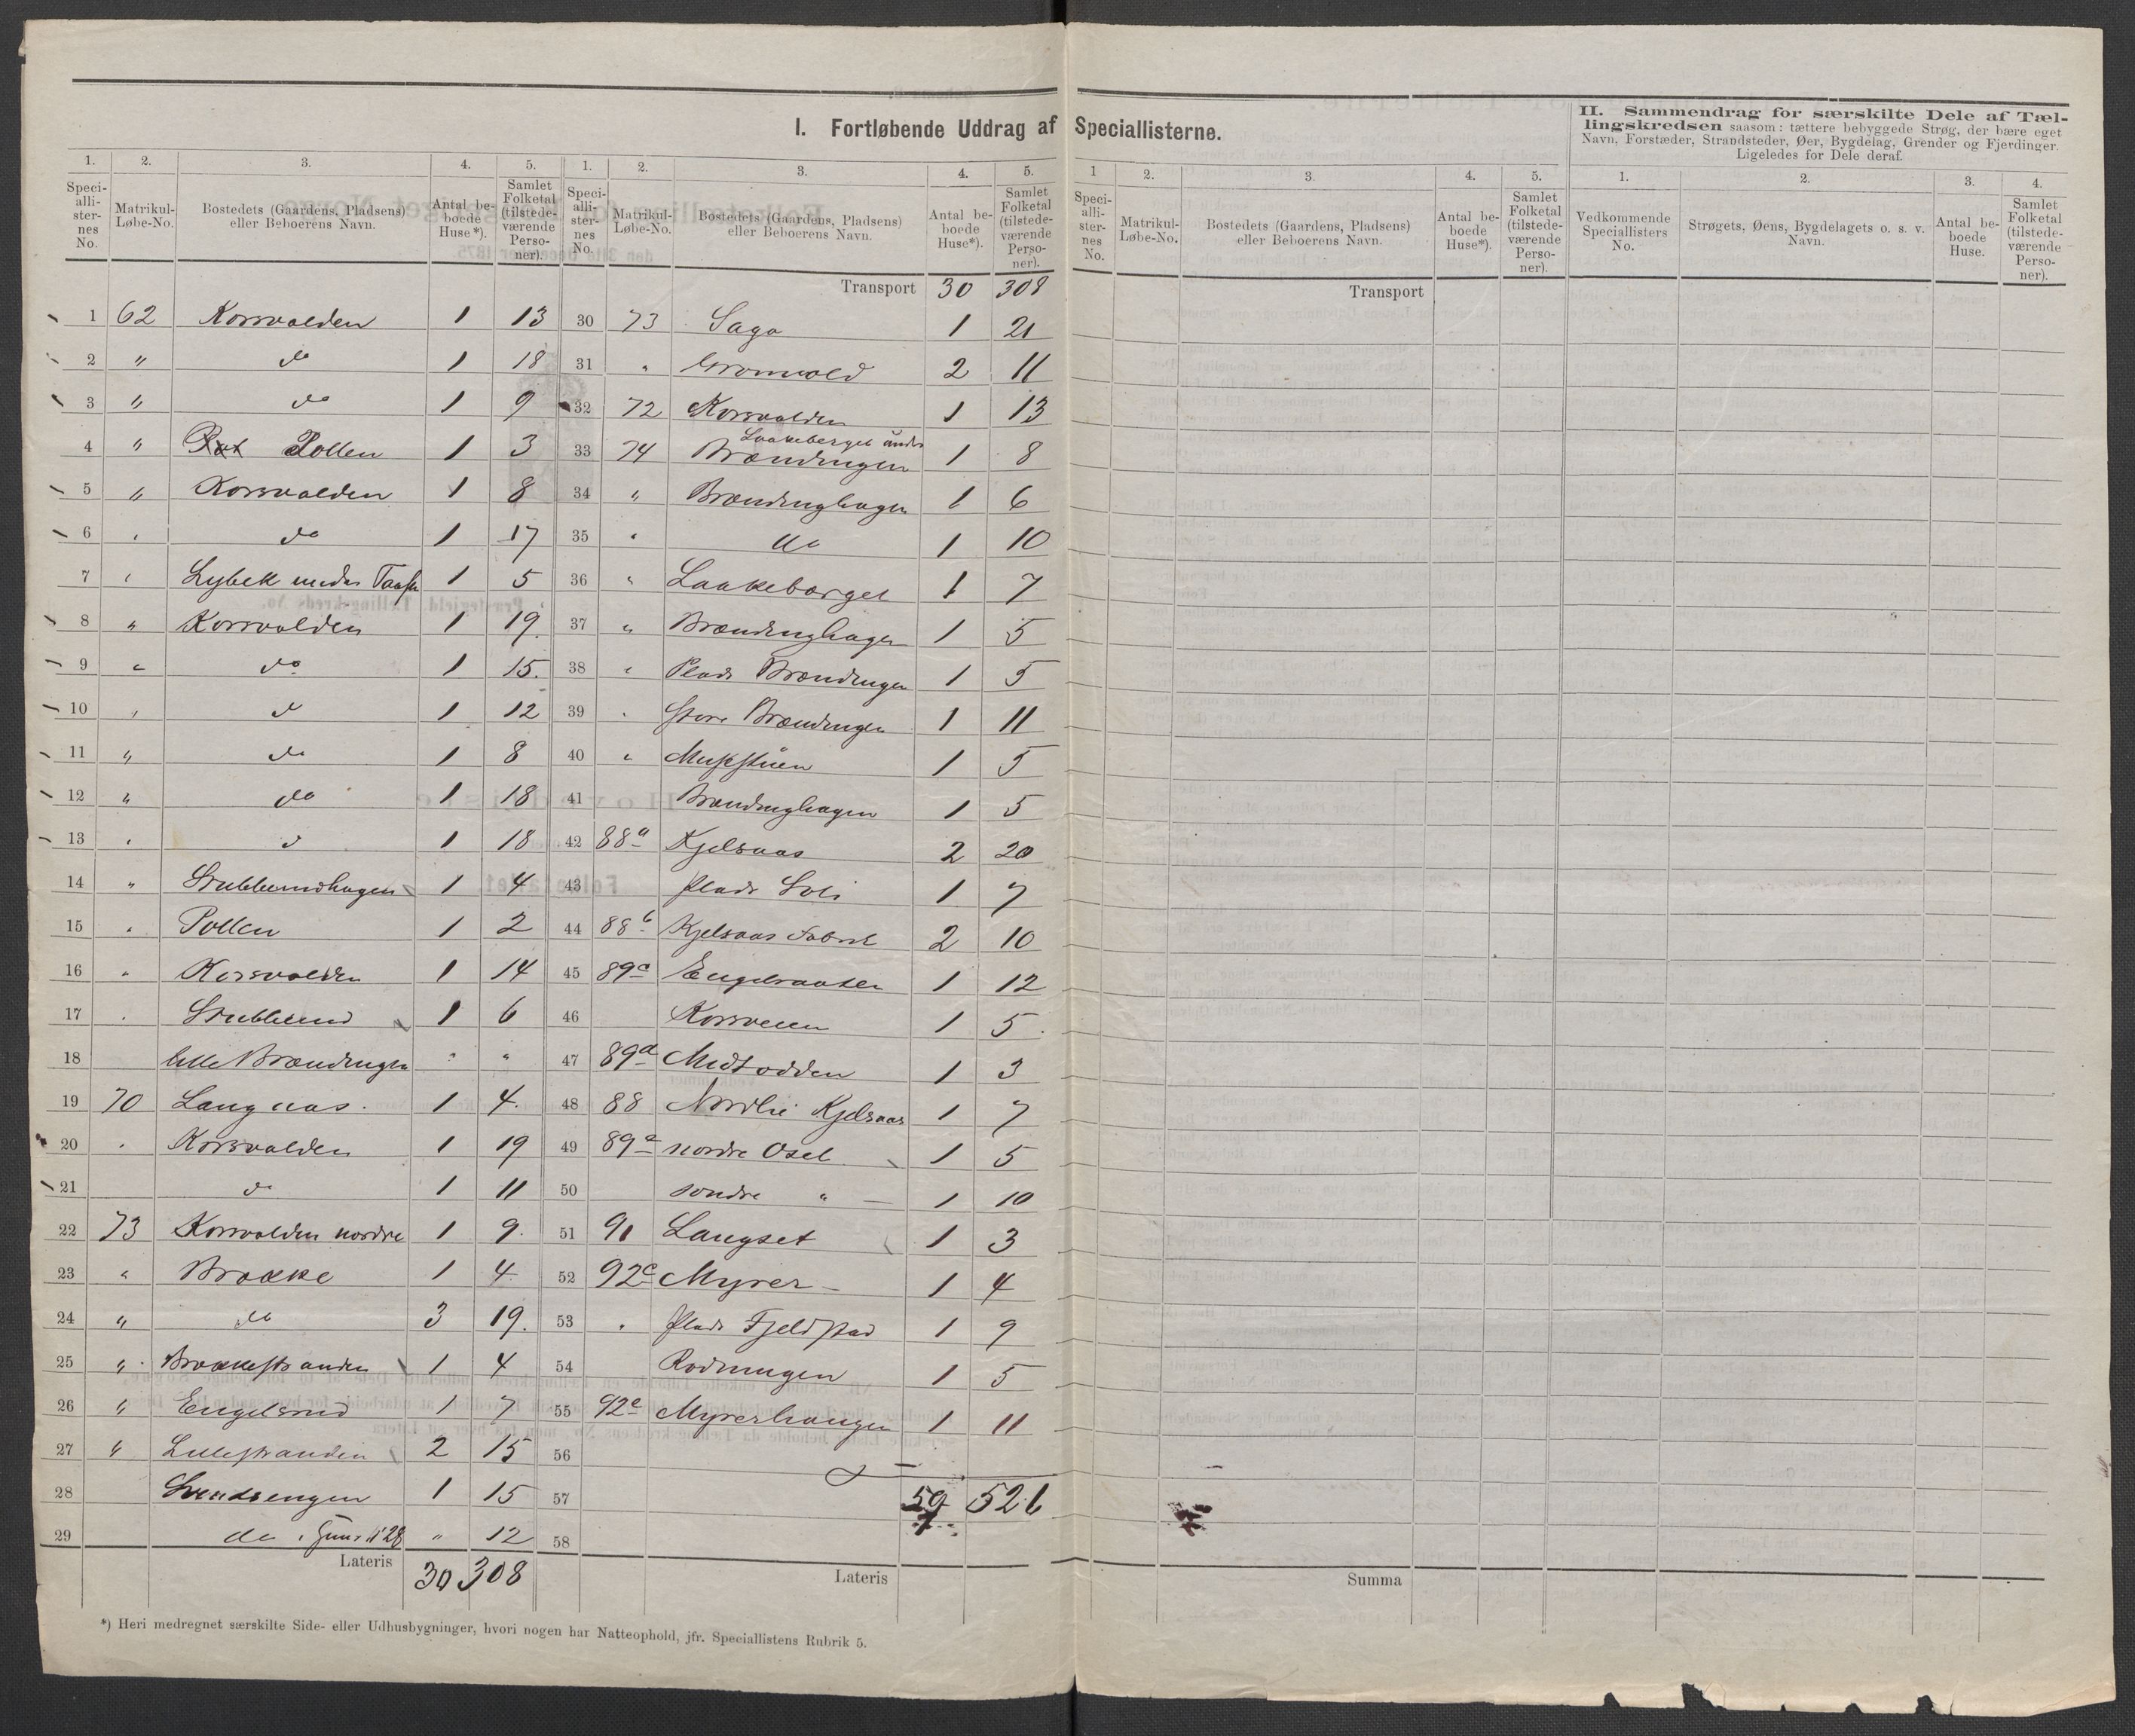 I. Fortløbende Uddrag af Speciallisterne.
II. Sammendrag for særskilte Dele af Tæl-
lingskredsen saasom: tættere bebyggede Strøg, der bære eget
Navn, Forstæder, Strandsteder, Øer, Bygdelag, Grender og Fjerdinger.
Ligeledes for Dele deraf.
1. 2. 3. 4. 5. 1. 2. 3. 4. 5. 1 2. 3. 4. 5. 1. 2. 3. 4.
Speci-alli-ster-nes No. Matrikul-Løbe-No. Bostedets (Gaardens, Pladsens) eller Beboerens Navn. Antal be-boede Huse*). Samlet Folketal (tilstede-værende Perso-ner).
Speci-alli-ster-nes No. Matrikul-Løbe-No. Bostedets (Gaardens, Pladsens) eller Beboerens Navn. Antal be-boede Huse*). Samlet Folketal (tilstede-værende Perso-ner).
Speci-alli-ster-nes No. Matrikul-Løbe-No. Bostedets (Gaardens, Pladsens) eller Beboerens Navn. Antal be-boede Huse*). Samlet Folketal (tilstede-værende Perso-ner).
Vedkommende Speciallisters No. Strøgets, Øens, Bygdelagets o. s. v. Navn. Antal be-boede Huse. Samlet Folketal (tilstede-værende Perso-ner).
1 62 Korsvolden 1 13
2 " do 1 18
3 " do 1 9
4 " Pollen 1 3
5 " Korsvolden 1 8
6 " do 1 17
7 " Lybek under 1 5
8 " Korsvolden 1 19
9 " do 1 15.
10 " do 1 12
11 " do 1 8
12 " do 1 18
13 " do 1 18
14 " Stubberudhagen 1 4
15 " Pollen 1 2
16 " Korsvolden 1 14
17 " Stubberud 1 6
18 lille Brændingen " "
19 70 Langnas. 1 4.
20 " Korsvolden 1 19
21 do 1 11
22 73 Korsvolden nordre 1 9.
23 " Brække 1 4
24 " do 3 19.
25 " Brækkestranden 1 4
26 " Engelsrud 1 7
27 " Lillestranden 2 15
28 Svendsengen 1 15
29 do 28 " 12
Lateris 30 308
Transport 30 308
30 73 Saga 1 21
31 " Grønvold 2 11
32 72 Korsvolden 1 13
33 74 Laakeberget under Brændingen 1 8
34 " Brændinghagen 1 6
35 " do 1 10
36 " Laakeberget 1 7
37 " Brændinghagen 1 5
38 " Plads Brændingen 1 5
39 " Store Brændingen 1 11
40 " 1 5
41 Brændinghagen 1 5
42 88a Kjelsaas 2 20
43 Plads Soli 1 7
44 88b Kjelsaas Fabrik 2 10
45 89a Engelsaasen 1 12
46 Korsveien 1 5.
47 89a Midtodden 1 3
48 88 Nordli Kjelsaas 1 7
49 89a nordre Oset 1 5
50 søndre " 1 10
51 91 Langset 1 3
52 92c Myrer 1 4
53 " Plads Fjeldstad 1 9
54 Rødningen 1 5
55 92c Myrerhaugen 1 11
56
57 59 526
58
Lateris
Transport
Summa
*) Heri medregnet særskilte Side- eller Udhusbygninger, hvori nogen har Natteophold, jfr. Speciallistens Rubrik 5.